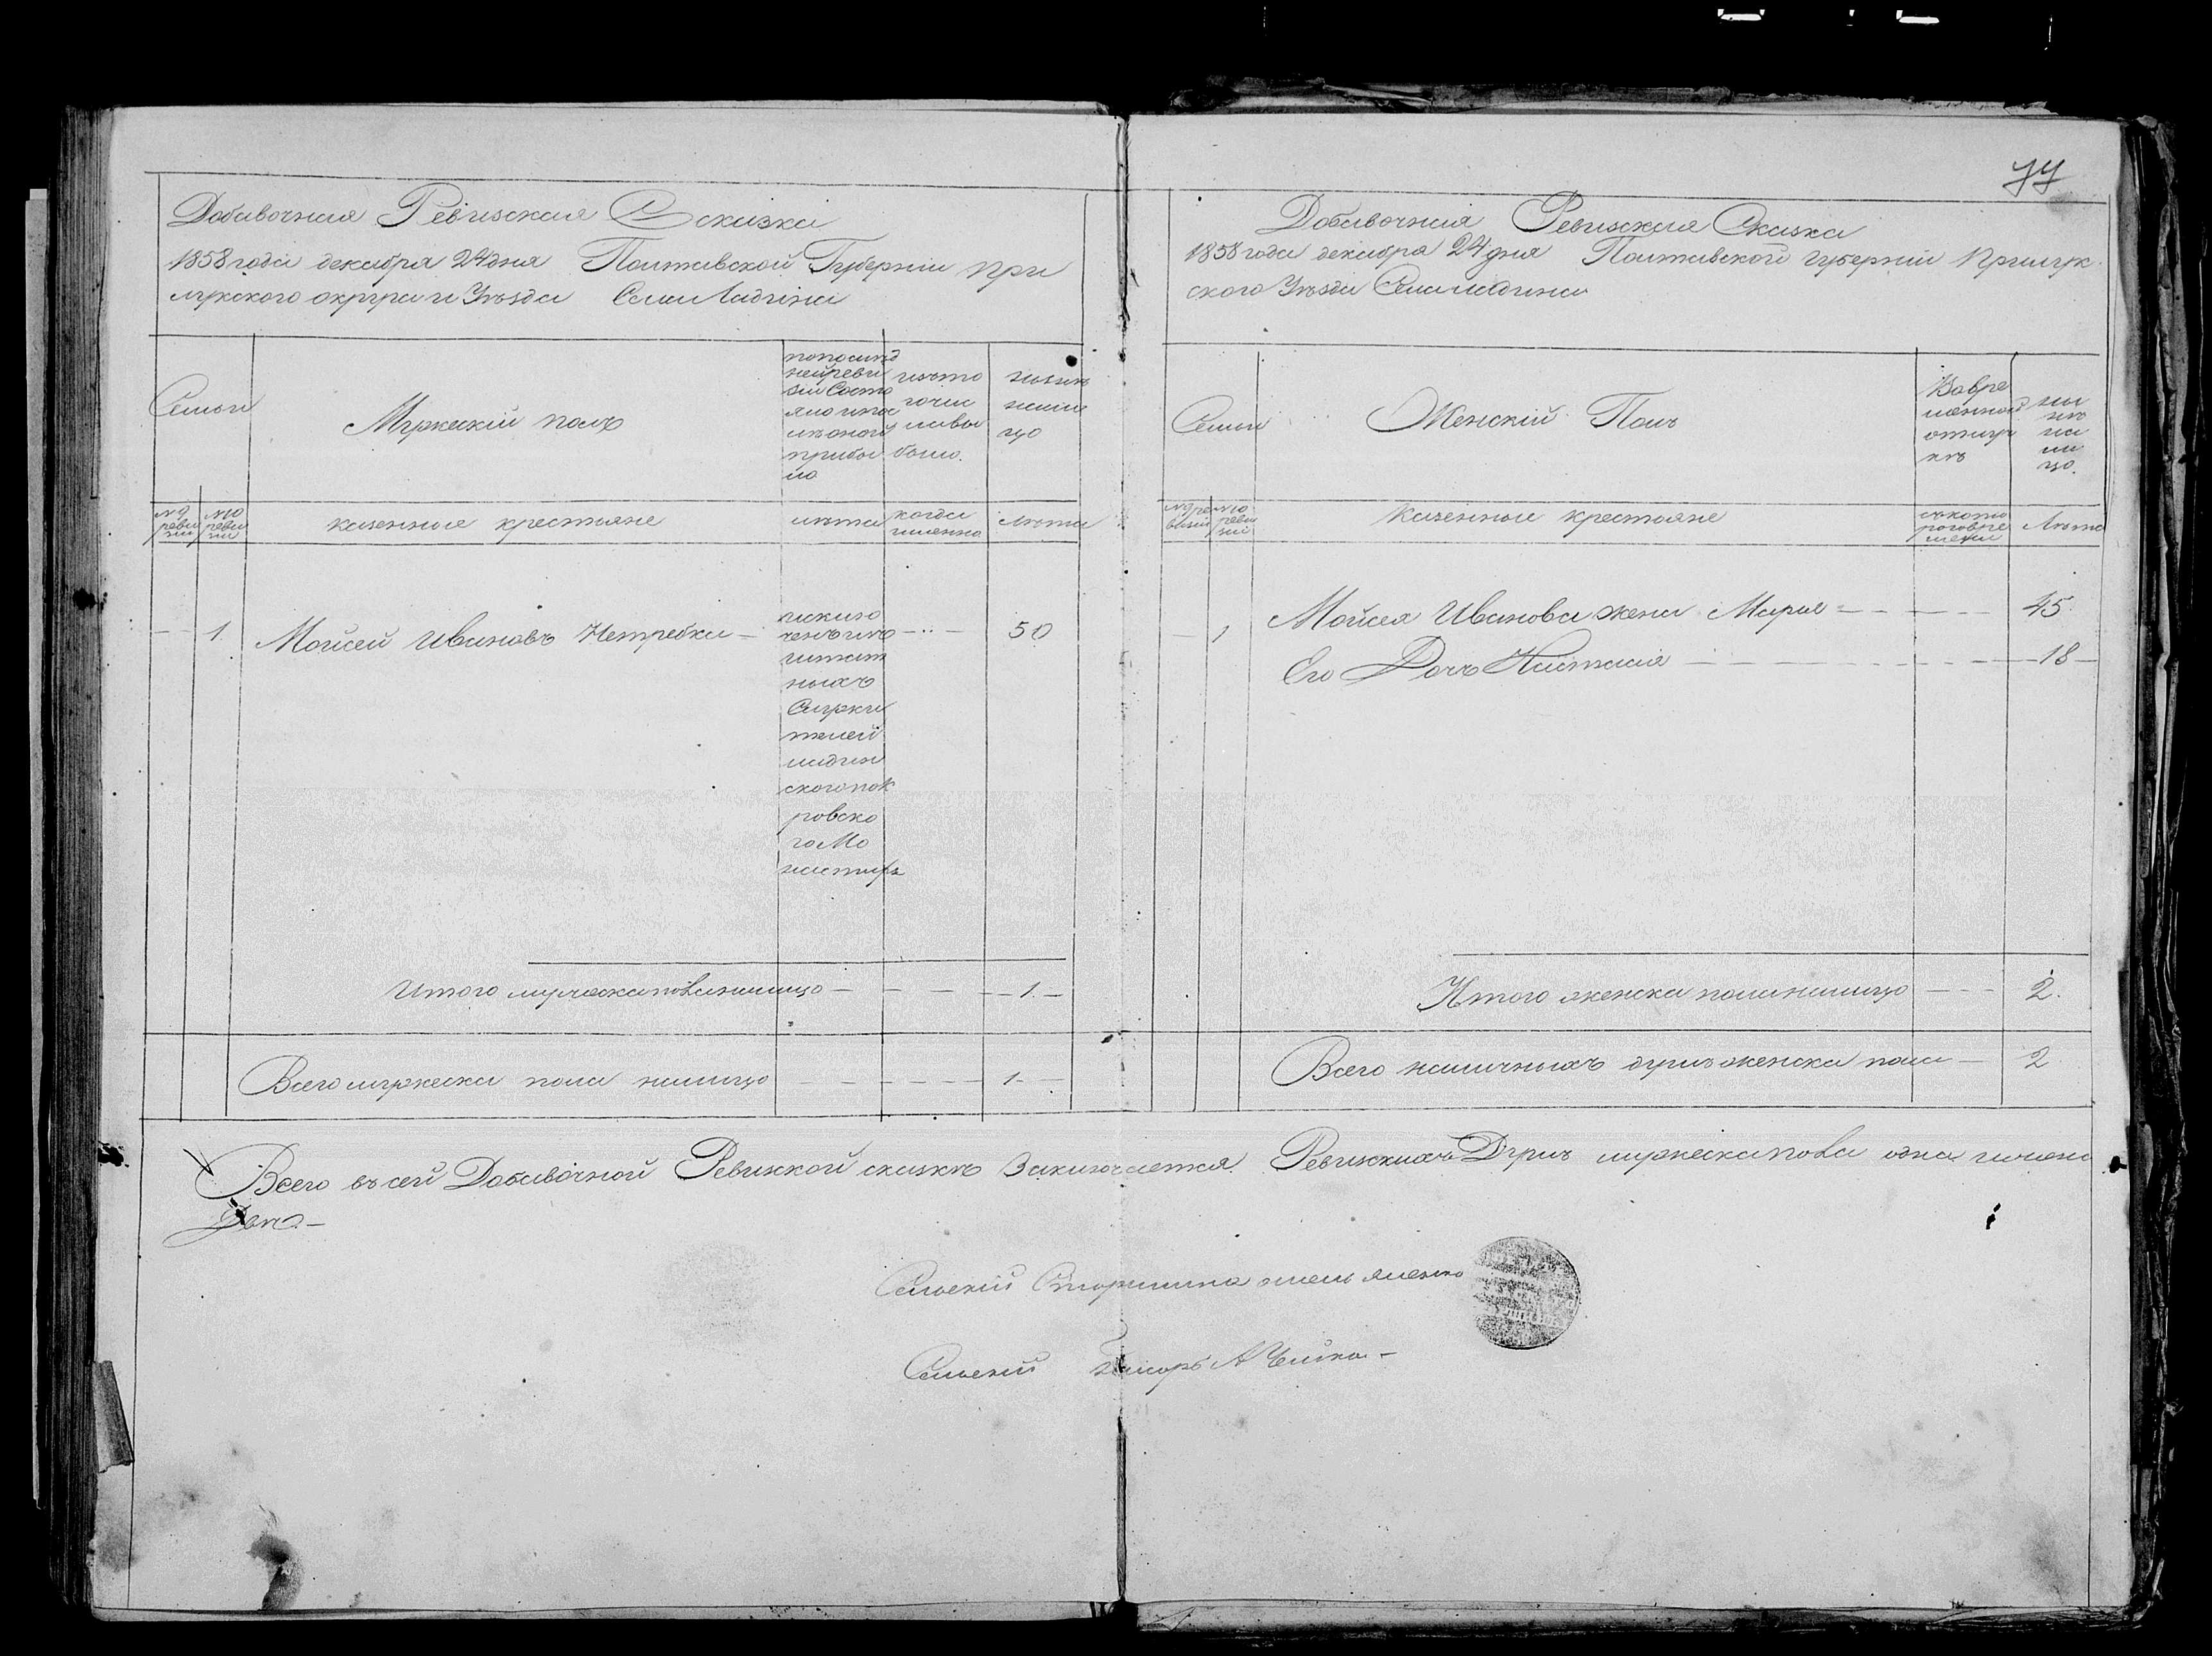 77
Добавочная Ревизская Сказка
1858 года декабря 24 дня Полтавской Губерніи При
лукского округа и Уѣзда Села Ладина
Семьи
Мужескій полъ
По послѣд
ней реви
зіи Состо
яло и по
слѣ оной
прибы
ло
изъ то
го чис
ла вы
было.
ны нѣ
на ли
цо
№ 9
реви
зіи
№ 10
реви
зіи
казенные крестьяне
лѣта
когда
именно
Лѣта
1.
Мойсей Ивановъ Нетребка —
исклю
ченъ изъ
штат
ныхъ
Служи
телей
ладин
ского пок
ровско
го Мо
настиря
50
Итого мужеска пола на лицо — — — — 1. —
Всего мужеска пола на лицо — — — — — 1. —
Добавочная Ревизская Сказка
1858 года декабря 24 дня Полтавской губерніи Прилук
ского Уѣзда Села ладина
Семьи
Женскій Полъ
Во вре
менной
отлуч
кѣ
ны
нѣ
на
ли
цо.
№ 9 ре
визіи
№ 10
реви
зіи
Казенные крестьяне
съ кото
рого вре
мени
Лѣта
1
Мойсея Иванова жена Марья — — — — 45.
Его Дочь Настасія — — — — — — — 18 —
Итого женска пола на лицо — — — 2.
Всего наличныхъ душъ женска пола — 2
Всего въ сей Добавочной Ревизкой сказкѣ Заключается Ревизкихъ Душъ мужеска пола одна
Сельскій Старшина Омельяненко
Сельскій Писарь А